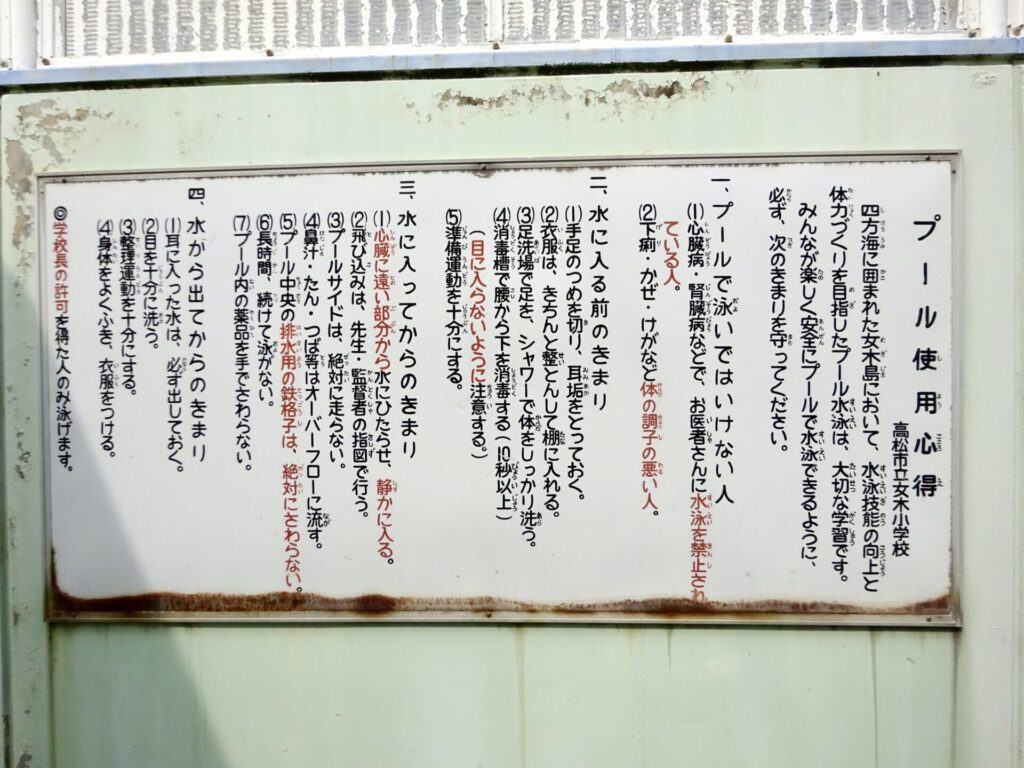 プール使用心得
高松市立女木小学校
四方海に囲まれた女木島において、水泳技能の向上と
体力づくりを目指したプール水泳は、大切な学習です。
みんなが楽しく安全にプールで水泳できるように、
必ず、次のきまりを守ってください。
一、プールで泳いではいけない人
⑴心臓病・腎臓病などで、お医者さんに水泳を禁止され
ている人。
⑵下痢・かぜ・けがなど体の調子の悪い人。
二、水に入る前のきまり
⑴手足のつめを切り、耳垢をとっておく。
⑵衣服は、きちんと整とんして棚に入れる。
⑶足洗場で足を、シャワーで体をしっかり洗う。
⑷消毒槽で腰から下を消毒する(10秒以上)
(目に入らないように注意する。)
⑸準備運動を十分にする。
三、水に入ってからのきまり
⑴心臓に遠い部分から水にひたらせ、静かに入る。
⑵飛び込みは、先生・監督者の指図で行う。
⑶プールサイドは、絶対に走らない。
⑷鼻汁・たん・つば等はオーバーフローに流す。
⑸プール中央の排水用の鉄格子は、絶対にさわらない。
⑹長時間、続けて泳がない。
⑺プール内の薬品を手でさわらない。
四、水から出てからのきまり
⑴耳に入った水は、必ず出しておく。
⑵目を十分に洗う。
⑶整理運動を十分にする。
⑷身体をよくふき、衣服をつける。
◎学校長の許可を得た人のみ泳げます。